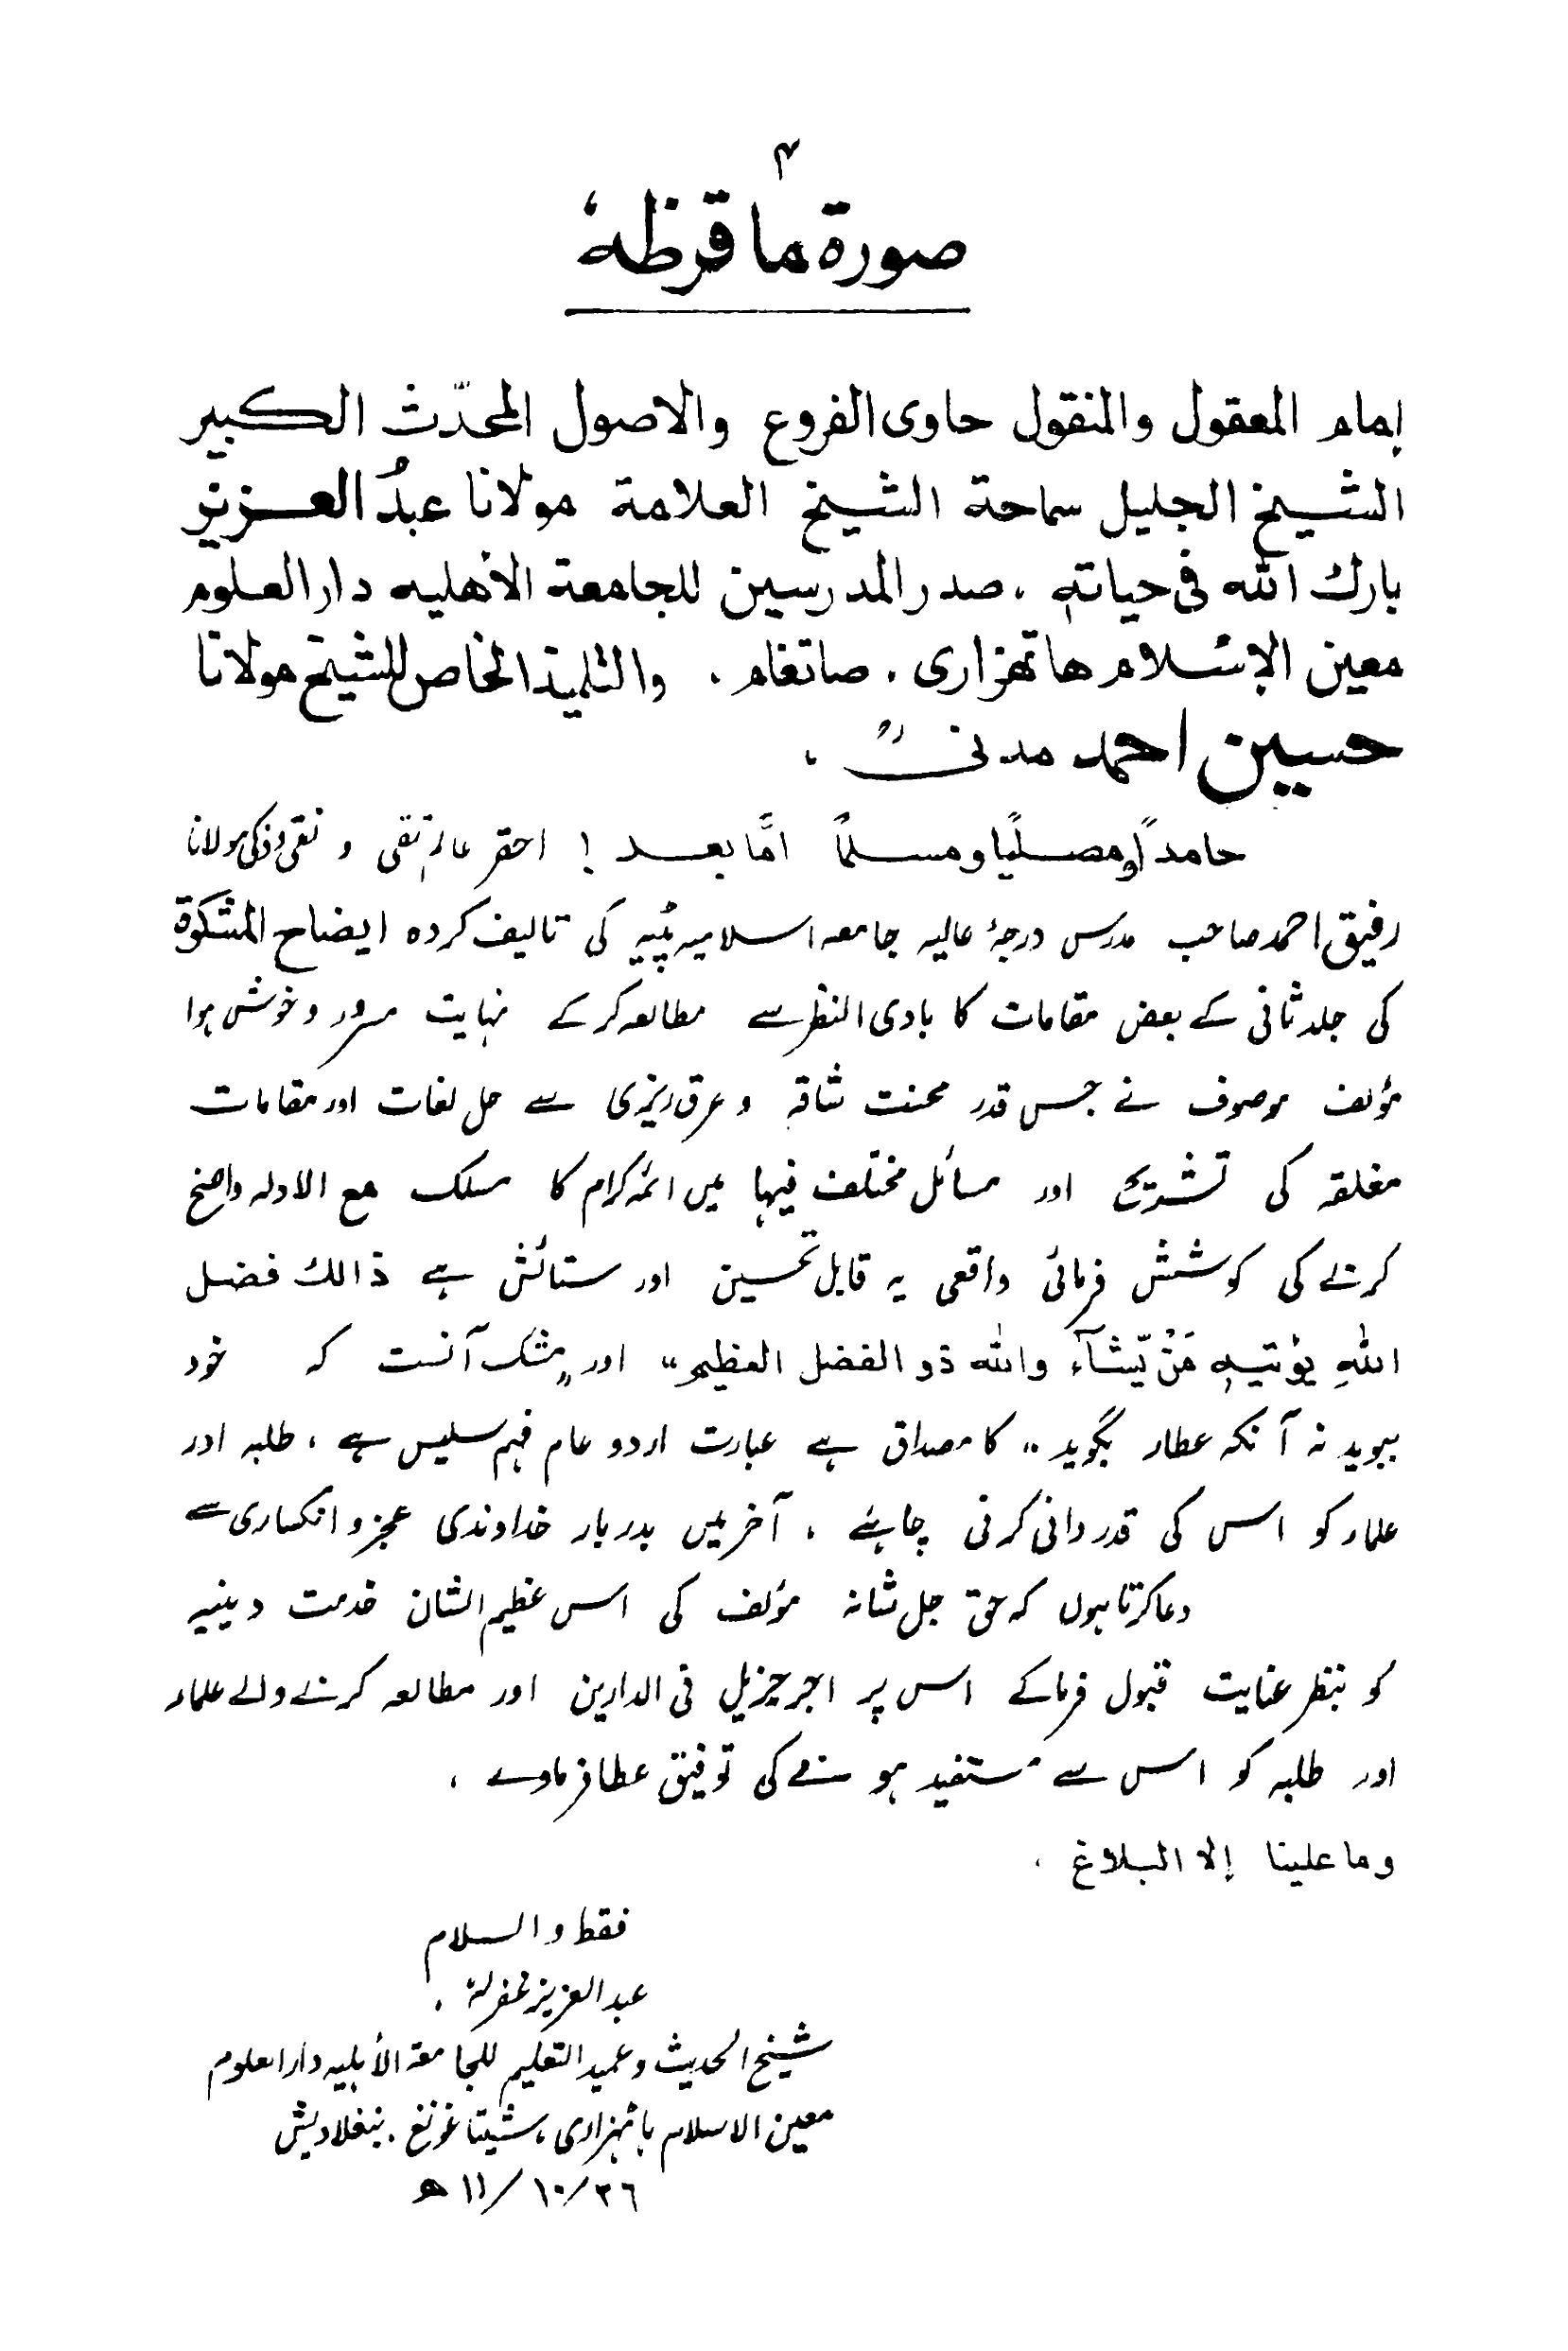 ۴
صورة ما قرظهٗ
إمام المعقول والمنقول حاوی الفروع والاصول المحدّث الكبير
الشيخ الجليل سماحة الشيخ العلامة مولانا عبدُ العزيز
بارك الله فی حياتهٖ ، صدر المدرسين للجامعة الأهليه دار العلوم
معين الإسلام هاتهزاری ، صاتغام ، والتلميذ الخاص للشيخ مولانا
حسين احمد مدنیؒ ،
حامداً ومصليًا ومسلماً امَّا بعد ! احقر عالم تقی و نقی وذکی مولانا
رفیق احمد صاحب مدرس درجۂ عالیہ جامعہ اسلامیہ پٹیہ کی تالیف کردہ ایضاح المشکوٰۃ
کی جلد ثانی کے بعض مقامات کا بادی النظر سے مطالعہ کر کے نہایت مسرور و خوش ہوا
مؤلف موصوف نے جس قدر محنت شاقہ و عرق ریزی سے حل لغات اور مقامات
مغلقہ کی تشریح اور مسائل مختلف فیہا میں ائمہ کرام کا مسلک مع الادلہ واضح
کرنے کی کوشش فرمائی واقعی یہ قابل تحسین اور ستائش ہے ذالك فضل
اللهِ يؤتيهٖ مَنْ يّشآء والله ذو الفضل العظيم" اور "مشک آنست کہ خود
ببوید نہ آنکہ عطار بگوید" کا مصداق ہے عبارت اردو عام فہم سلیس ہے ، طلبہ اور
علماء کو اس کی قدر دانی کرنی چاہئے ، آخر میں بدر بار خداوندی عجز و انکساری سے
دعا کرتا ہوں کہ حق جل شانہ مؤلف کی اس عظیم الشان خدمت دینیہ
کو بنظر عنایت قبول فرما کے اس پر اجر جزیل فی الدارین اور مطالعہ کرنے والے علماء
اور طلبہ کو اس سے مستفید ہونے کی توفیق عطا فرماوے ،
وما علينا إلا البلاغ ،
فقط والسلام
عبد العزیز غفرلہٗ ،
شیخ الحدیث و عمید التعلیم للجامعۃ الأہلیہ دار العلوم
معین الاسلام ہاٹہزاری ، شیتاغونغ . بنغلادیش
۲٦/۱۰/۱۱ ھ